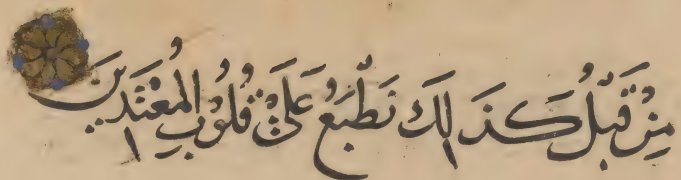 مِنْ قَبْلُ كَذَالِكَ نَطْبَعُ عَلَىٰ قُلُوبِ الْمُعْتَدِينَ